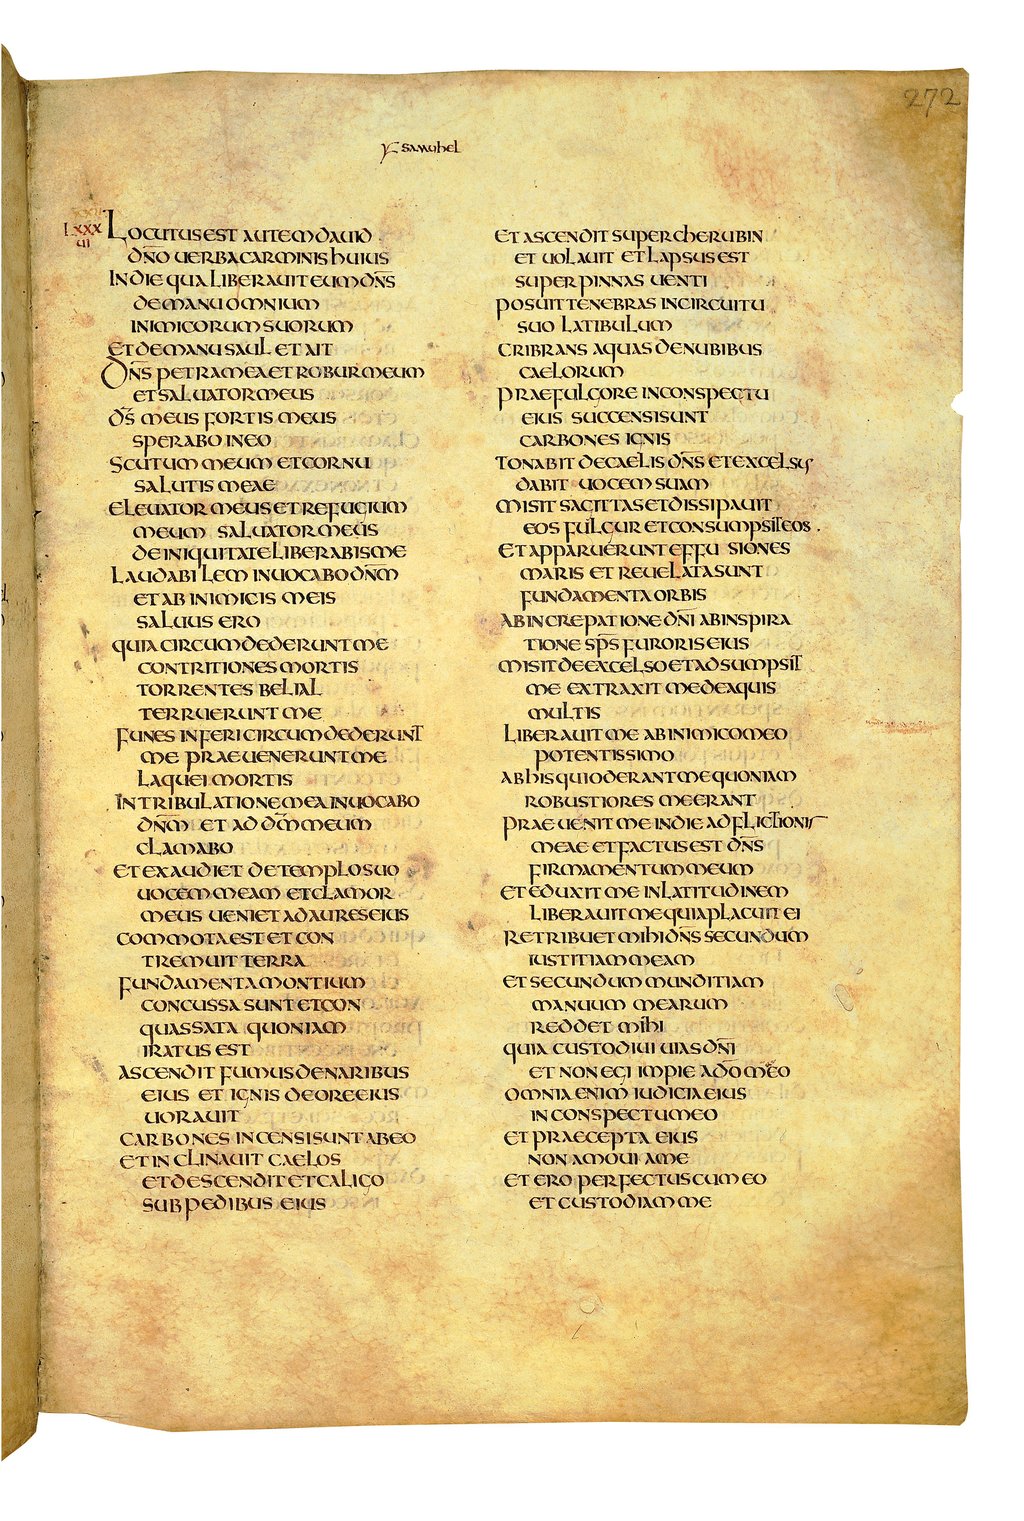 272
samuhel
LXXX
UI
LOCUTUS EST AUTEM DAUID
DN̅O UERBA CARMINIS HUIUS
IN DIE QUA LIBERAUIT EUM DN̅S
DE MANU OMNIUM
INIMICORUM SUORUM
ET DE MANU SAUL ET AIT
DN̅S PETRA MEA ET ROBUR MEUM
ET SALUATOR MEUS
DS̅ MEUS FORTIS MEUS
SPERABO IN EO
SCUTUM MEUM ET CORNU
SALUTIS MEAE
ELEUATOR MEUS ET REFUGIUM
MEUM SALUATOR MEUS
DE INIQUITATE LIBERABIS ME
LAUDABILEM INUOCABO DN̅M
ET AB INIMICIS MEIS
SALUUS ERO
QUIA CIRCUMDEDERUNT ME
CONTRITIONES MORTIS
TORRENTES BELIAL
TERRUERUNT ME
FUNES INFERI CIRCUMDEDERUNT
ME PRAEUENERUNT ME
LAQUEI MORTIS
IN TRIBULATIONE MEA INUOCABO
DN̅M ET AD DM̅ MEUM
CLAMABO
ET EXAUDIET DE TEMPLO SUO
UOCEM MEAM ET CLAMOR
MEUS UENIET AD AURES EIUS
COMMOTA EST ET CON
TREMUIT TERRA
FUNDAMENTA MONTIUM
CONCUSSA SUNT ET CON
QUASSATA QUONIAM
IRATUS EST
ASCENDIT FUMUS DE NARIBUS
EIUS ET IGNIS DE ORE EIUS
UORAUIT
CARBONES INCENSI SUNT AB EO
ET INCLINAUIT CAELOS
ET DESCENDIT ET CALIGO
SUB PEDIBUS EIUS
ET ASCENDIT SUPER CHERUBIN
ET UOLAUIT ET LAPSUS EST
SUPER PINNAS UENTI
POSUIT TENEBRAS IN CIRCUITU
SUO LATIBULUM
CRIBRANS AQUAS DE NUBIBUS
CAELORUM
PRAE FULGORE IN CONSPECTU
EIUS SUCCENSI SUNT
CARBONES IGNIS
TONABIT DE CAELIS DN̅S ET EXCELSUS
DABIT UOCEM SUAM
MISIT SAGITTAS ET DISSIPAUIT
EOS FULGUR ET CONSUMPSIT EOS .
ET APPARUERUNT EFFUSIONES
MARIS ET REUELATA SUNT
FUNDAMENTA ORBIS
AB INCREPATIONE DN̅I AB INSPIRA
TIONE SP̅S FURORIS EIUS
MISIT DE EXCELSO ET ADSUMPSIT
ME EXTRAXIT ME DE AQUIS
MULTIS
LIBERAUIT ME AB INIMICO MEO
POTENTISSIMO
AB HIS QUI ODERANT ME QUONIAM
ROBUSTIORES ME ERANT
PRAEUENIT ME IN DIE ADFLICTIONIS
MEAE ET FACTUS EST DN̅S
FIRMAMENTUM MEUM
ET EDUXIT ME IN LATITUDINEM
LIBERAUIT ME QUIA PLACUIT EI
RETRIBUET MIHI DN̅S SECUNDUM
IUSTITIAM MEAM
ET SECUNDUM MUNDITIAM
MANUUM MEARUM
REDDET MIHI
QUIA CUSTODIUI UIAS DN̅I
ET NON EGI IMPIE A DO̅ MEO
OMNIA ENIM IUDICIA EIUS
IN CONSPECTU MEO
ET PRAECEPTA EIUS
NON AMOUI A ME
ET ERO PERFECTUS CUM EO
ET CUSTODIAM ME